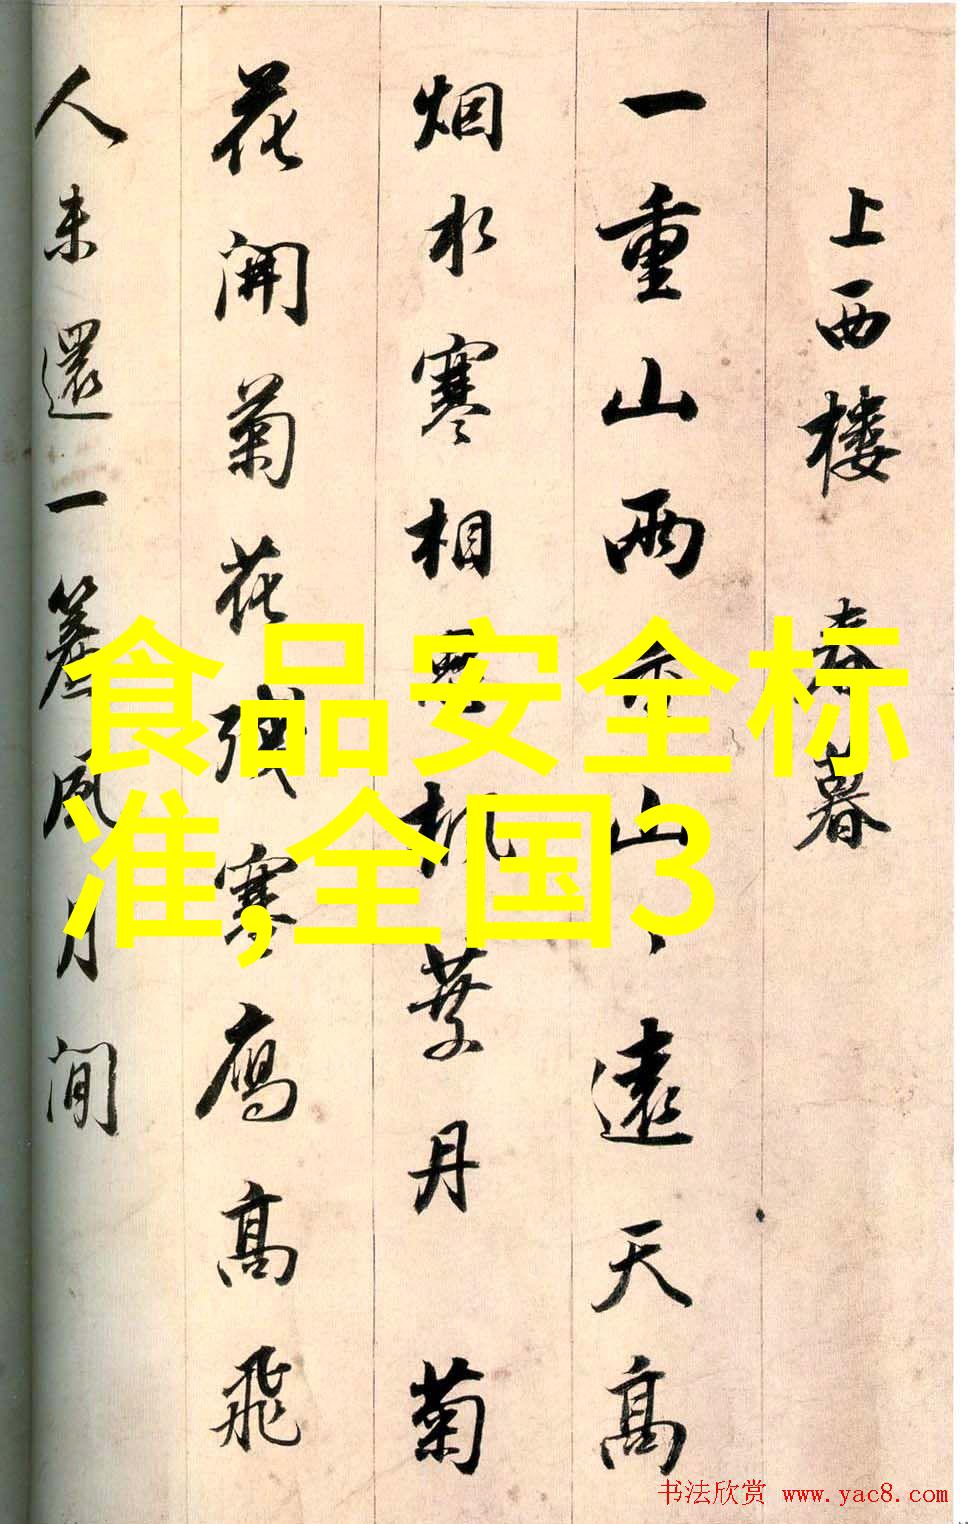 上西楼
一重山兩山遠天高
烟水寒相思楓葉丹 菊
花開菊花殘塞鴈高飛
人未還一簾風月閒
食品安全标
准,全国3
书法欣赏 www.yac8.com